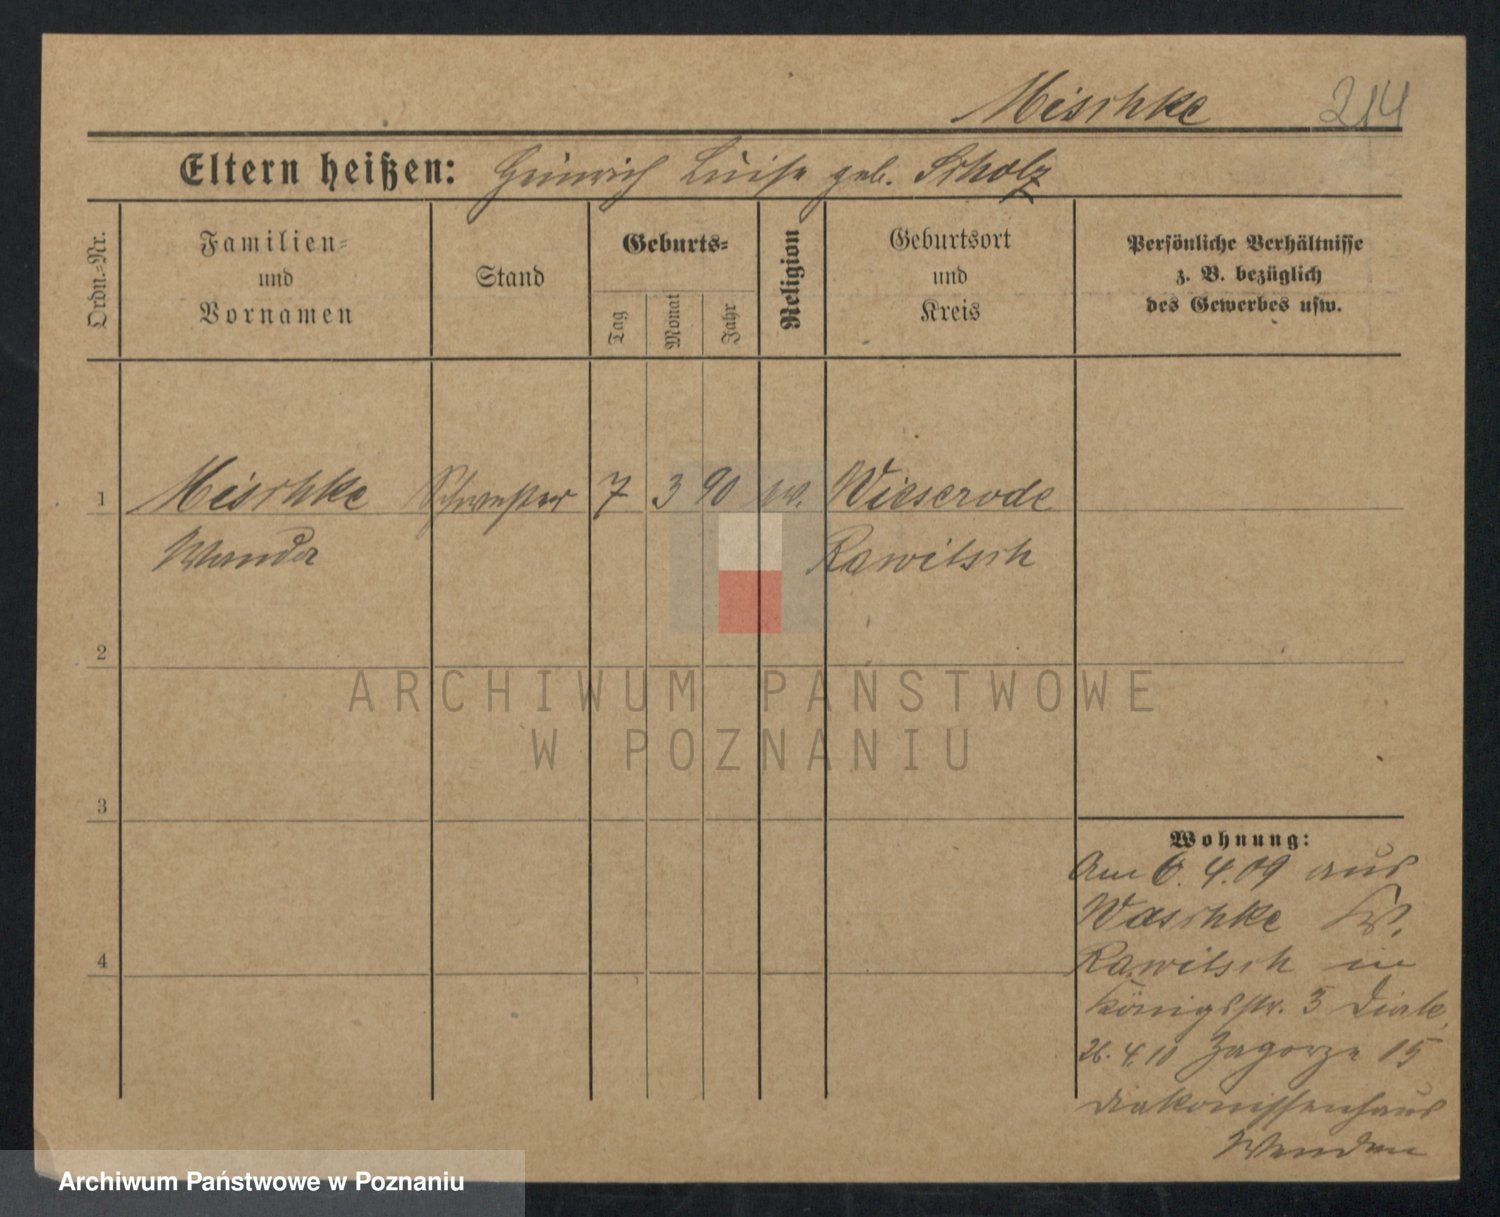 Mischke 214
Eltern heißen: Heinrich Luise geb. Scholz
Ordn.=Nr.
Familien=
und
Vornamen
Stand
Geburts=
Tag
Monat
Jahr
Religion
Geburtsort
und
Kreis
Persönliche Verhältnisse
z. B. bezüglich
des Gewerbes usw.
1 Mischke Schwester 7 3 90 ev. Wieserode
Wanda Rawitsch
2
ARCHIWUM PAŃSTWOWE
W POZNANIU
3
4
Wohnung:
Am 6. 4. 09 aus
Waschke Kr.
Rawitsch in
Königsstr. 3 Diak.
26. 4. 10 Zagorze 15
Diakonissenhaus
Archiwum Państwowe w Poznaniu